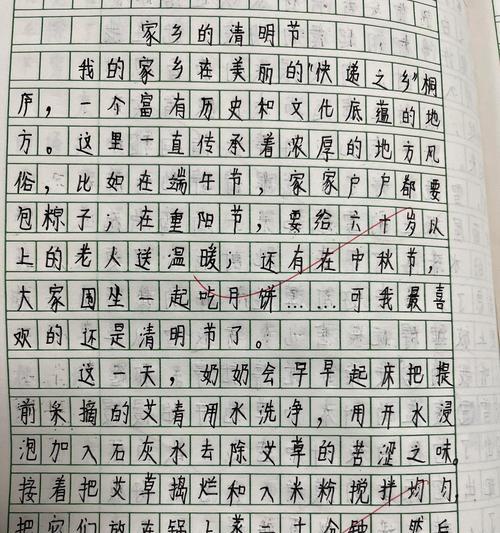 家乡的清明节
我的家乡在美丽的"快递之乡"桐
庐，一个富有历史和文化底蕴的地
方。这里一直传承着浓厚的地方风
俗，比如在端午节，家家户户都要
包粽子；在重阳节，要给六十岁以
上的老人送温暖；还有在中秋节，
大家围坐一起吃月饼……可我最喜
欢的还是清明节了。
这一天，奶奶会早早起床把提
前采摘的艾青用水洗净，用开水浸
泡加入石灰水去除艾草的苦涩之味。
接着把艾草捣烂和入米粉搅拌均匀，
把它们放在锅上蒸二十分钟，然后